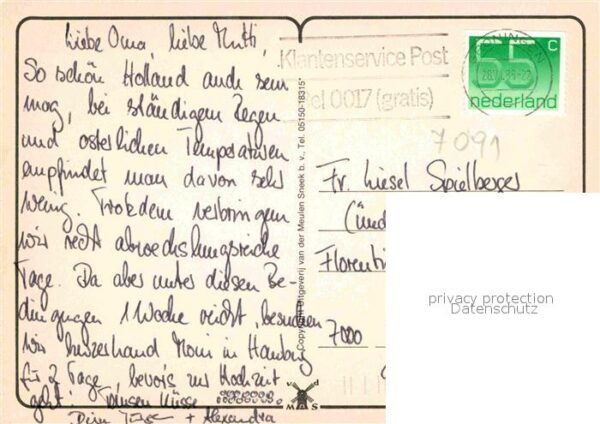 Liebe Oma, liebe Mutti,
So schön Holland auch sein
mag, bei ständigem Regen
und osterlichen Temperaturen
empfindet man davon sehr
wenig. Trotzdem verbringen
wir recht abwechslungsreiche
Tage. Da aber unter diesen Be-
dingungen 1 Woche reicht, besuchen
wir kurzerhand Moni in Hamburg
für 2 Tage, bevor's zur Hochzeit
geht! Tausend Küsse
+ Alexandra
Klantenservice Post
Bel 0017 (gratis)
55 C
nederland
7091
Fr. Liesel Spielberger
Florenti
7000
Copyright Uitgeverij van der Meulen Sneek b.v., Tel. 05150-18315*
v d
M S
privacy protection
Datenschutz